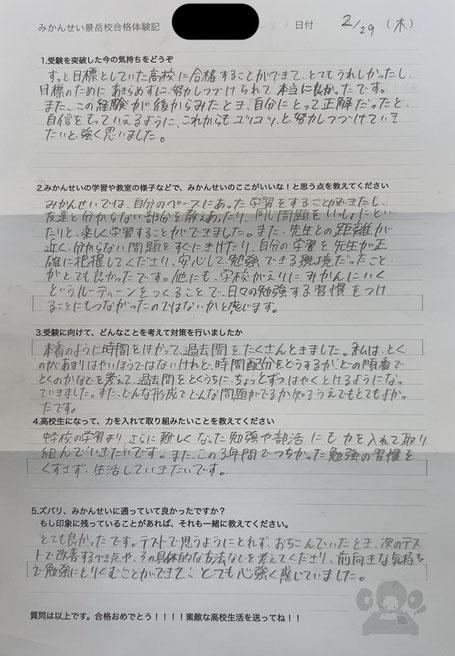 みかんせい景岳校合格体験記
日付 2/29 (木)
1.受験を突破した今の気持ちをどうぞ
ずっと目標としていた高校に合格することができて、とてもうれしかったし、
目標のためにあきらめずに、努力しつづけられて本当に良かったです。
また、この経験が後からみたとき、自分にとって正解だったと、
自信をもっていえるように、これからもコツコツと努力しつづけていき
たいと強く思いました。
2.みかんせいの学習や教室の様子などで、みかんせいのここがいいな!と思う点を教えてください
みかんせいでは、自分のペースにあった学習をすることができたし、
友達と分からない部分を教えあったり、同じ問題をいっしょにとい
たりと、楽しく学習することができました。また、先生との距離が
近く、分からない問題をすぐにきけたり、自分の学習を先生が正
確に把握してくださり、安心して勉強できる環境だったこと
がとても良かったです。他にも、学校がえりにみかんにいく
というルーティーンをつくることで、日々の勉強する習慣をつけ
ることにもつながったのではないかと感じます。
3.受験に向けて、どんなことを考えて対策を行いましたか
本番のように時間をはかって、過去問をたくさんときました。私は、とく
のがあまりはやいほうではないけれど、時間配分をどうするか、どの順番で
とくのかなどを考えて、過去問をとくうちに、ちょっとずつはやくとけるようになっ
ていきました。また、どんな形式でどんな問題がでるか知るうえでもとてもよか
ったです。
4.高校生になって、力を入れて取り組みたいことを教えてください
中学校の学習より、さらに難しくなった勉強や部活にも力を入れて取り
組んでいきたいです。また、この3年間でつちかった勉強の習慣を
くずさず、生活していきたいです。
5.ズバリ、みかんせいに通っていて良かったですか?
もし印象に残っていることがあれば、それも一緒に教えてください。
とても良かったです。テストで思うようにとれず、おちこんでいたとき、次のテス
トで改善するべき点や、その具体的な方法などを考えてくださり、前向きな気持ち
で勉強にとりくむことができて、とても心強く感じていました。
質問は以上です。合格おめでとう!!!!素敵な高校生活を送ってね!!